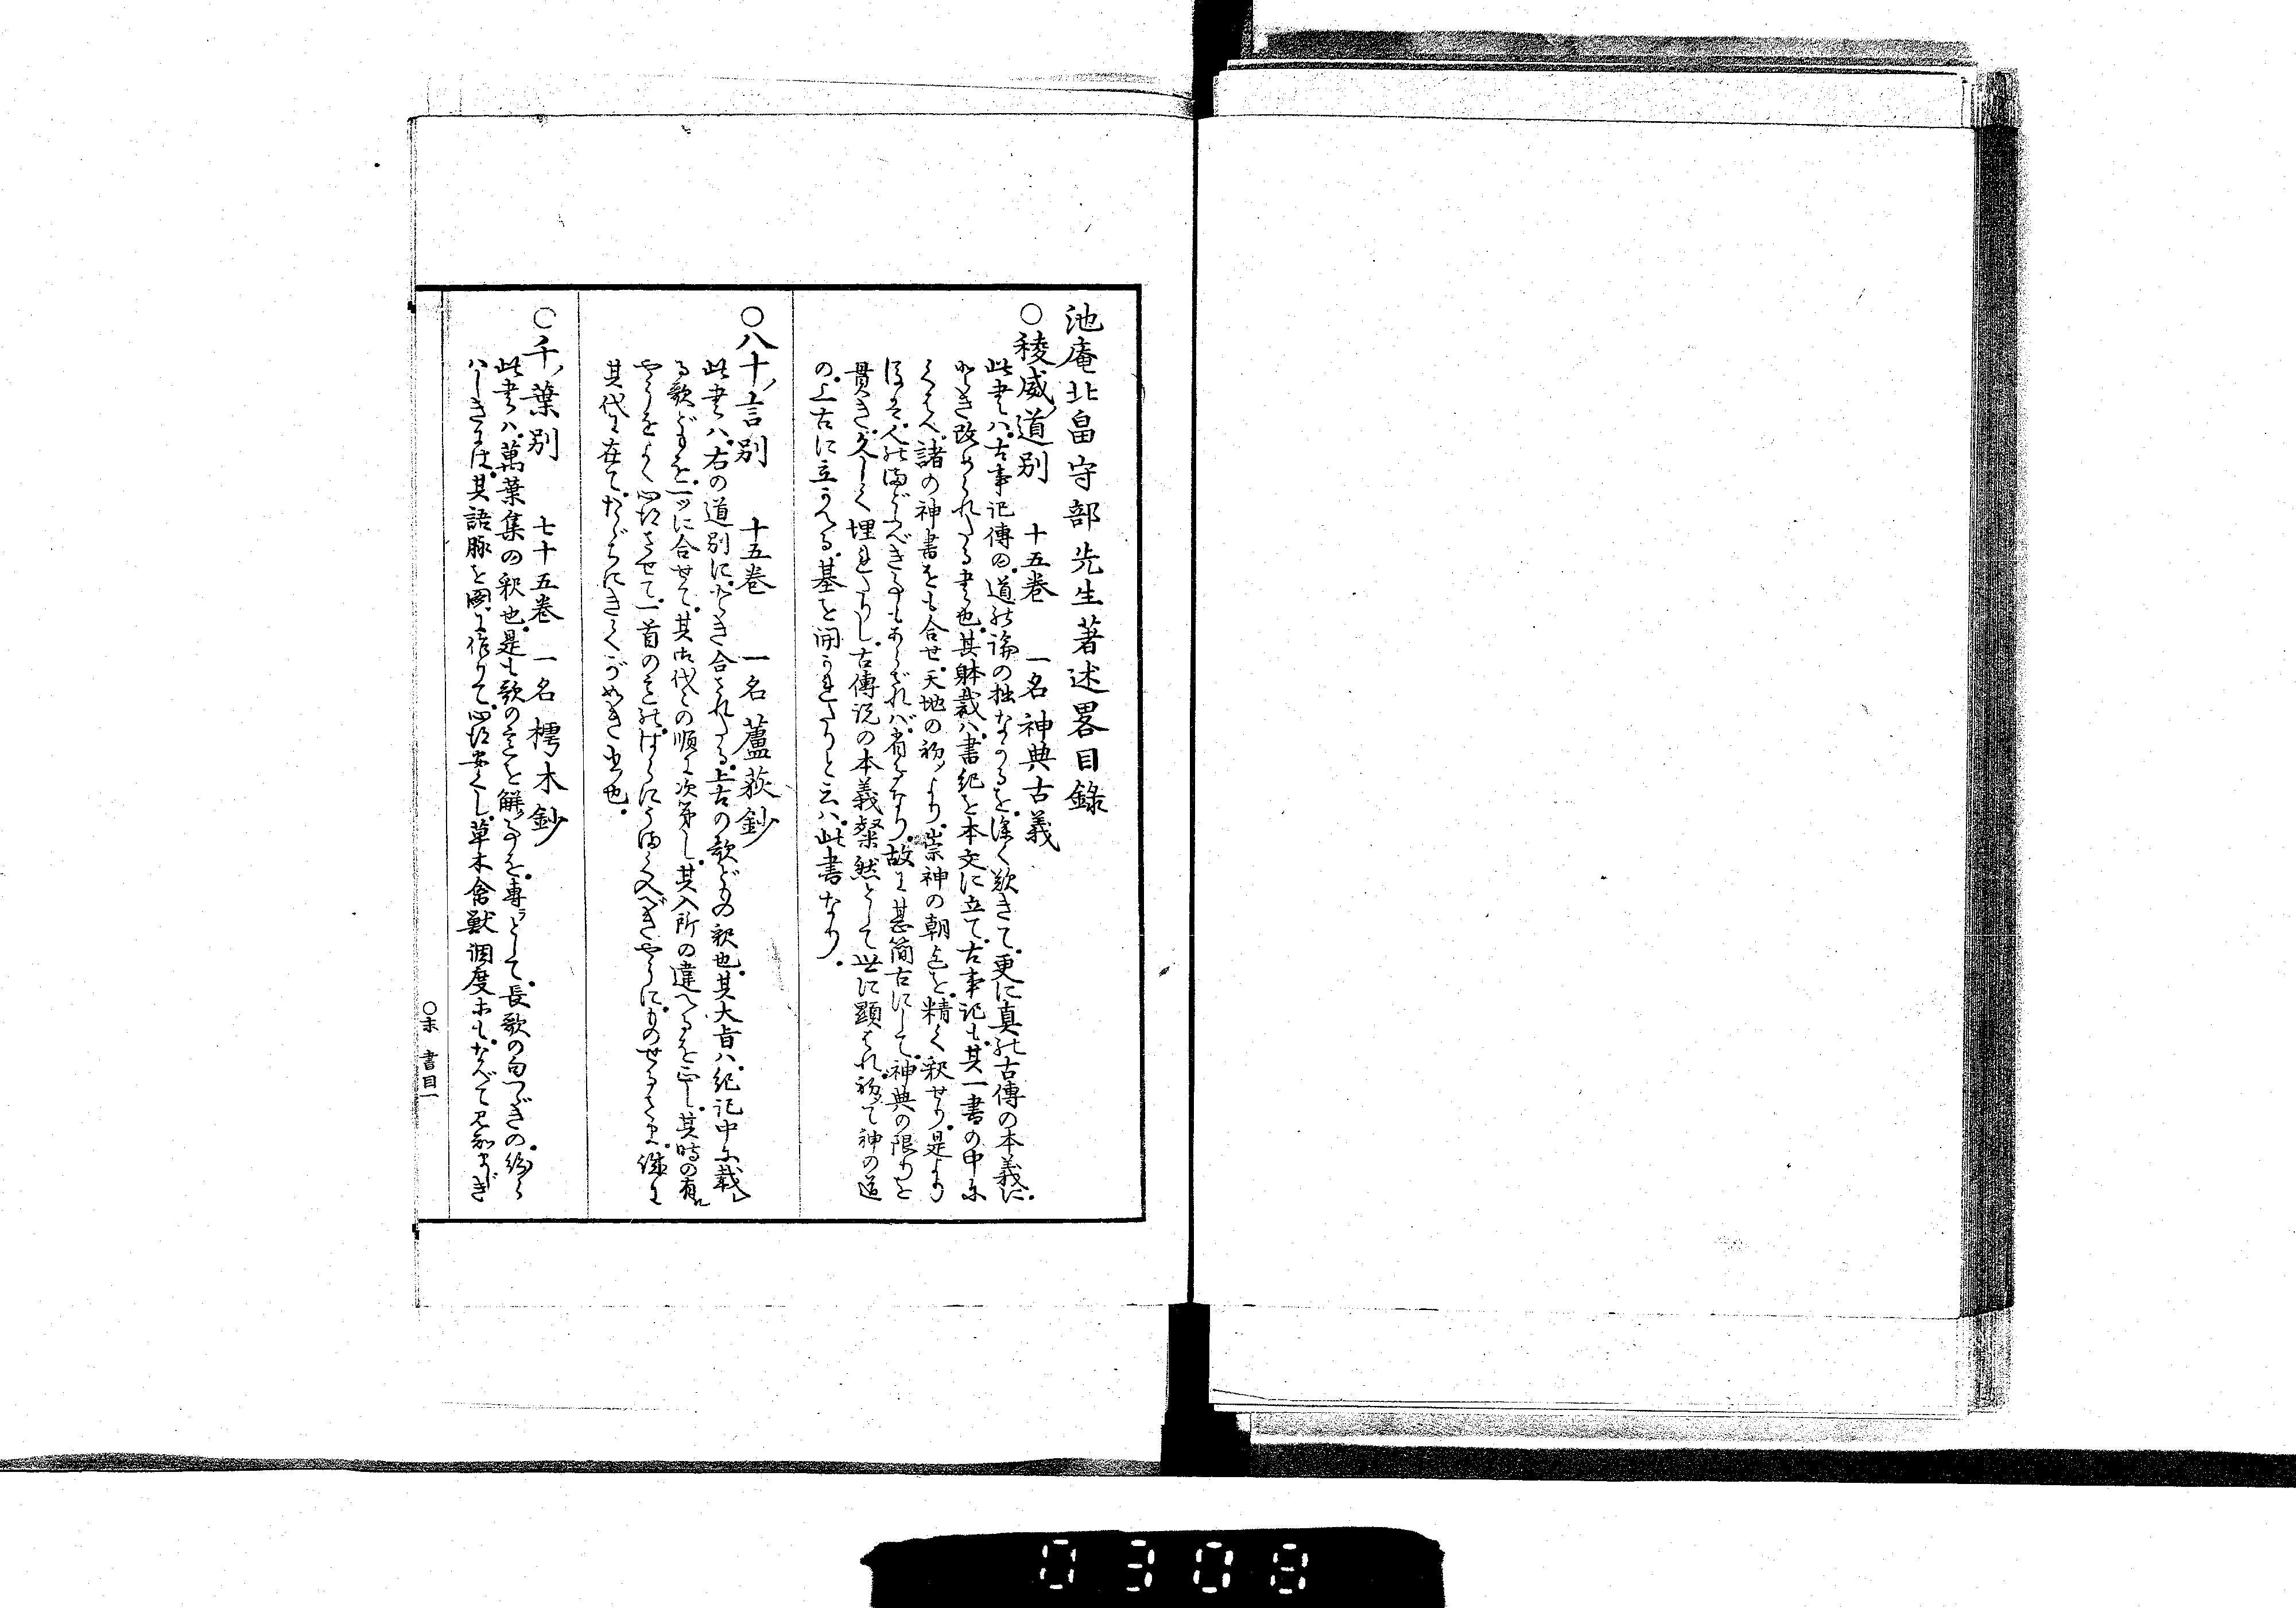 池庵北畠守部先生著述畧目錄
○稜威道別 十五巻 一名神典古義
此書ハ古事記傳の道の論の拙なかるを深く歎きて更に真の古傳の本義に
とき改められたる書也其躰裁ハ書紀を本文に立て古事記も其一書の中に
くはへ諸の神書をも合せ天地の初より崇神の朝迄を精く釈せり是より
ほそ人のまどふべき事もあらざれバ省るなり故に甚簡古にして神典の限りを
貫き久しく埋れたりし古傳説の本義粲然として世に顕はれ初て神の道
の上古に立かへる基を開かれたりと云ハ此書なり
○八十言別 十五巻 一名蘆荻鈔
此書ハ右の道別にとき合されたる上古の歌どもの釈也其大旨ハ紀記中に載
る歌どもを一ツに合せて其御代〻の順に次第し其入所の違へるを正し其時の有
やうをよく心得させて一首のことのはらにうまく入べきやうにものせるさま誠に
其代に在てたゞちにきくがごとき書也
○千葉別 七十五巻 一名樗木鈔
此書ハ萬葉集の釈也是も歌のこゝろを解事を専として長歌の句つゞきの紛ら
ハしきには其語脉を圖に作りて心得安くし草木禽獣調度等もなべて見知まじき
○末 書目一
0308